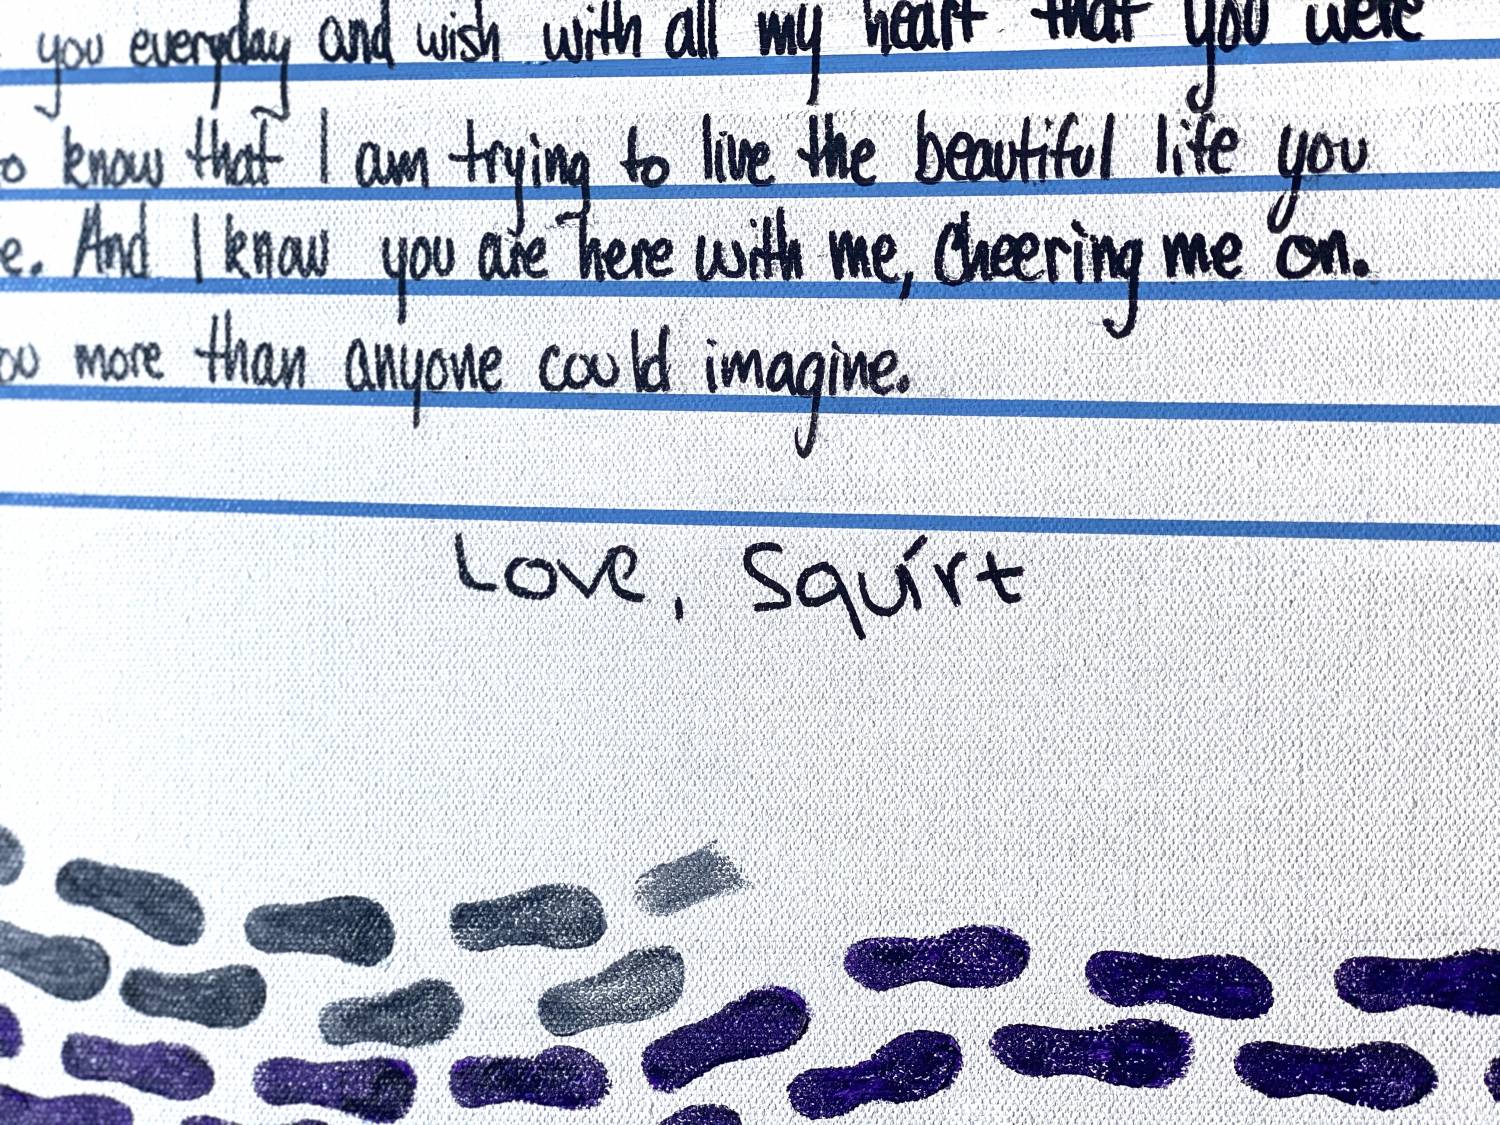 you everyday and wish with all my heart that you were
o know that I am trying to live the beautiful life you
e. And I know you are here with me, cheering me on.
ou more than anyone could imagine.
Love, Squirt